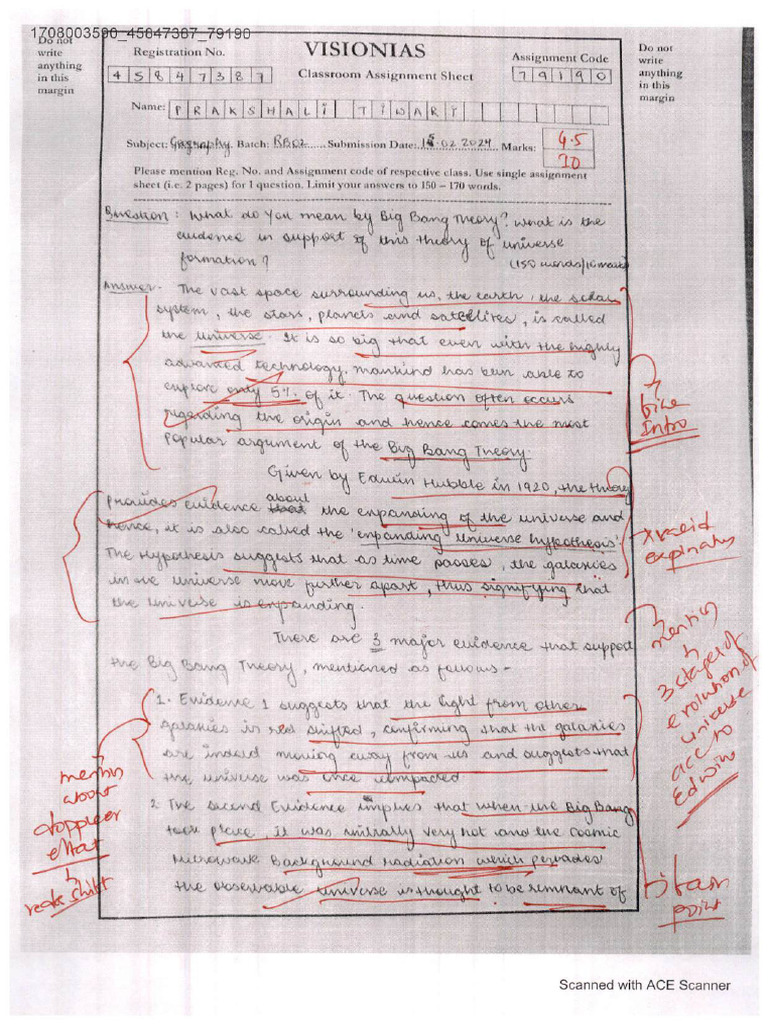 1708003590_45847387_79190
Do not
write
anything
in this
margin
Registration No.
4 5 8 4 7 3 8 7
VISIONIAS
Classroom Assignment Sheet
Assignment Code
7 9 1 9 0
Do not
write
anything
in this
margin
Name: PRAKSHALI TIWARI
Subject: Geography Batch: RB02 Submission Date: 15.02.2024 Marks: 4.5
10
Please mention Reg. No. and Assignment code of respective class. Use single assignment
sheet (i.e. 2 pages) for 1 question. Limit your answers to 150 – 170 words.
Question : What do You mean by Big Bang Theory? What is the
evidence in support of this theory of universe
formation?
(150 words/10 marks)
Answer - The vast space surrounding us, the earth, the solar
system, the stars, planets and satellites, is called
the universe. It is so big that even with the highly
advanced technology, mankind has been able to
explore only 5% of it. The question often occurs
regarding the origin and hence comes the most
Popular argument of the Big Bang Theory.
fine
Intro
Given by Edwin Hubble in 1920, the theory
provides evidence about the expanding of the universe and
hence, it is also called the 'expanding universe hypothesis'.
The Hypothesis suggests that as time passes, the galaxies
in the universe move further apart, thus signifying that
the universe is expanding.
There are 3 major evidence that support
the Big Bang Theory, mentioned as follows -
mention
3 stages of
evolution of
universe
acc to
Edwin
1. Evidence 1 suggests that the light from other
galaxies is red shifted, confirming that the galaxies
are indeed moving away from us and suggests that
the universe was once compacted
mention
about
doppler
effect
red shift
2. The second Evidence implies that when the Big Bang
took place, it was initially very hot and the cosmic
microwave Background radiation which pervades
the observable universe is thought to be remnant of
point
Scanned with ACE Scanner